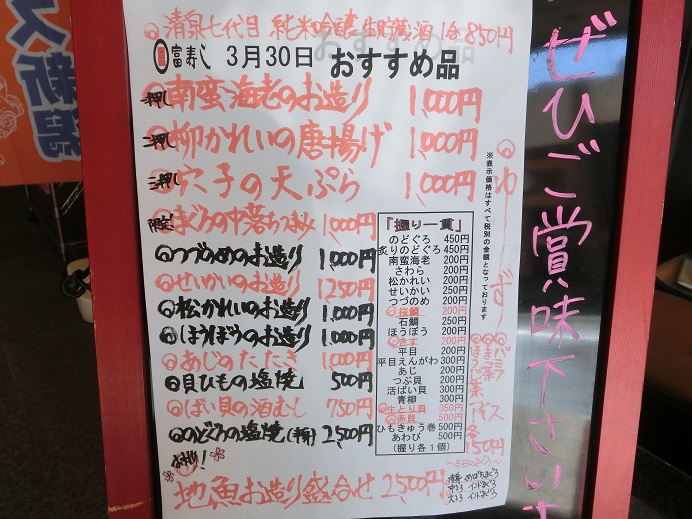 清泉七代目 純米吟醸 生貯蔵酒 1合 850円
富寿し 3月30日 おすすめ品
一押し 南蛮海老のお造り 1,000円
二押し 柳かれいの唐揚げ 1,000円
三押し 穴子の天ぷら 1,000円
限定! まぐろの中落ちつまみ 1,000円
◎つづのめのお造り 1,000円
◎せいかいのお造り 1,250円
◎松かれいのお造り 1,000円
◎ほうぼうのお造り 1,000円
◎あじのたたき 1,000円
◎貝ひもの塩焼 500円
◎ばい貝の酒むし 750円
◎のどぐろの塩焼(半身) 2,500円
地魚お造り盛合せ 2,500円
「握り一貫」
のどぐろ 450円
炙りのどぐろ 450円
南蛮海老 200円
さわら 200円
松かれい 200円
せいかい 250円
つづのめ 200円
◎桜鯛 200円
石鯛 250円
ほうぼう 200円
◎きす 200円
平目 200円
平目えんがわ 300円
あじ 200円
つぶ貝 200円
活ばい貝 300円
青柳 300円
◎生とり貝 350円
◎赤貝 500円
ひもきゅう巻 500円
あわび 500円
(握り各1個)
※表示価格はすべて税別の金額となっております
アイス
各
150円
〜本日のまぐろ〜
赤身 めばちまぐろ
中とろ インドまぐろ
大とろ インドまぐろ
ぜひご賞味下さいませ
ス新潟